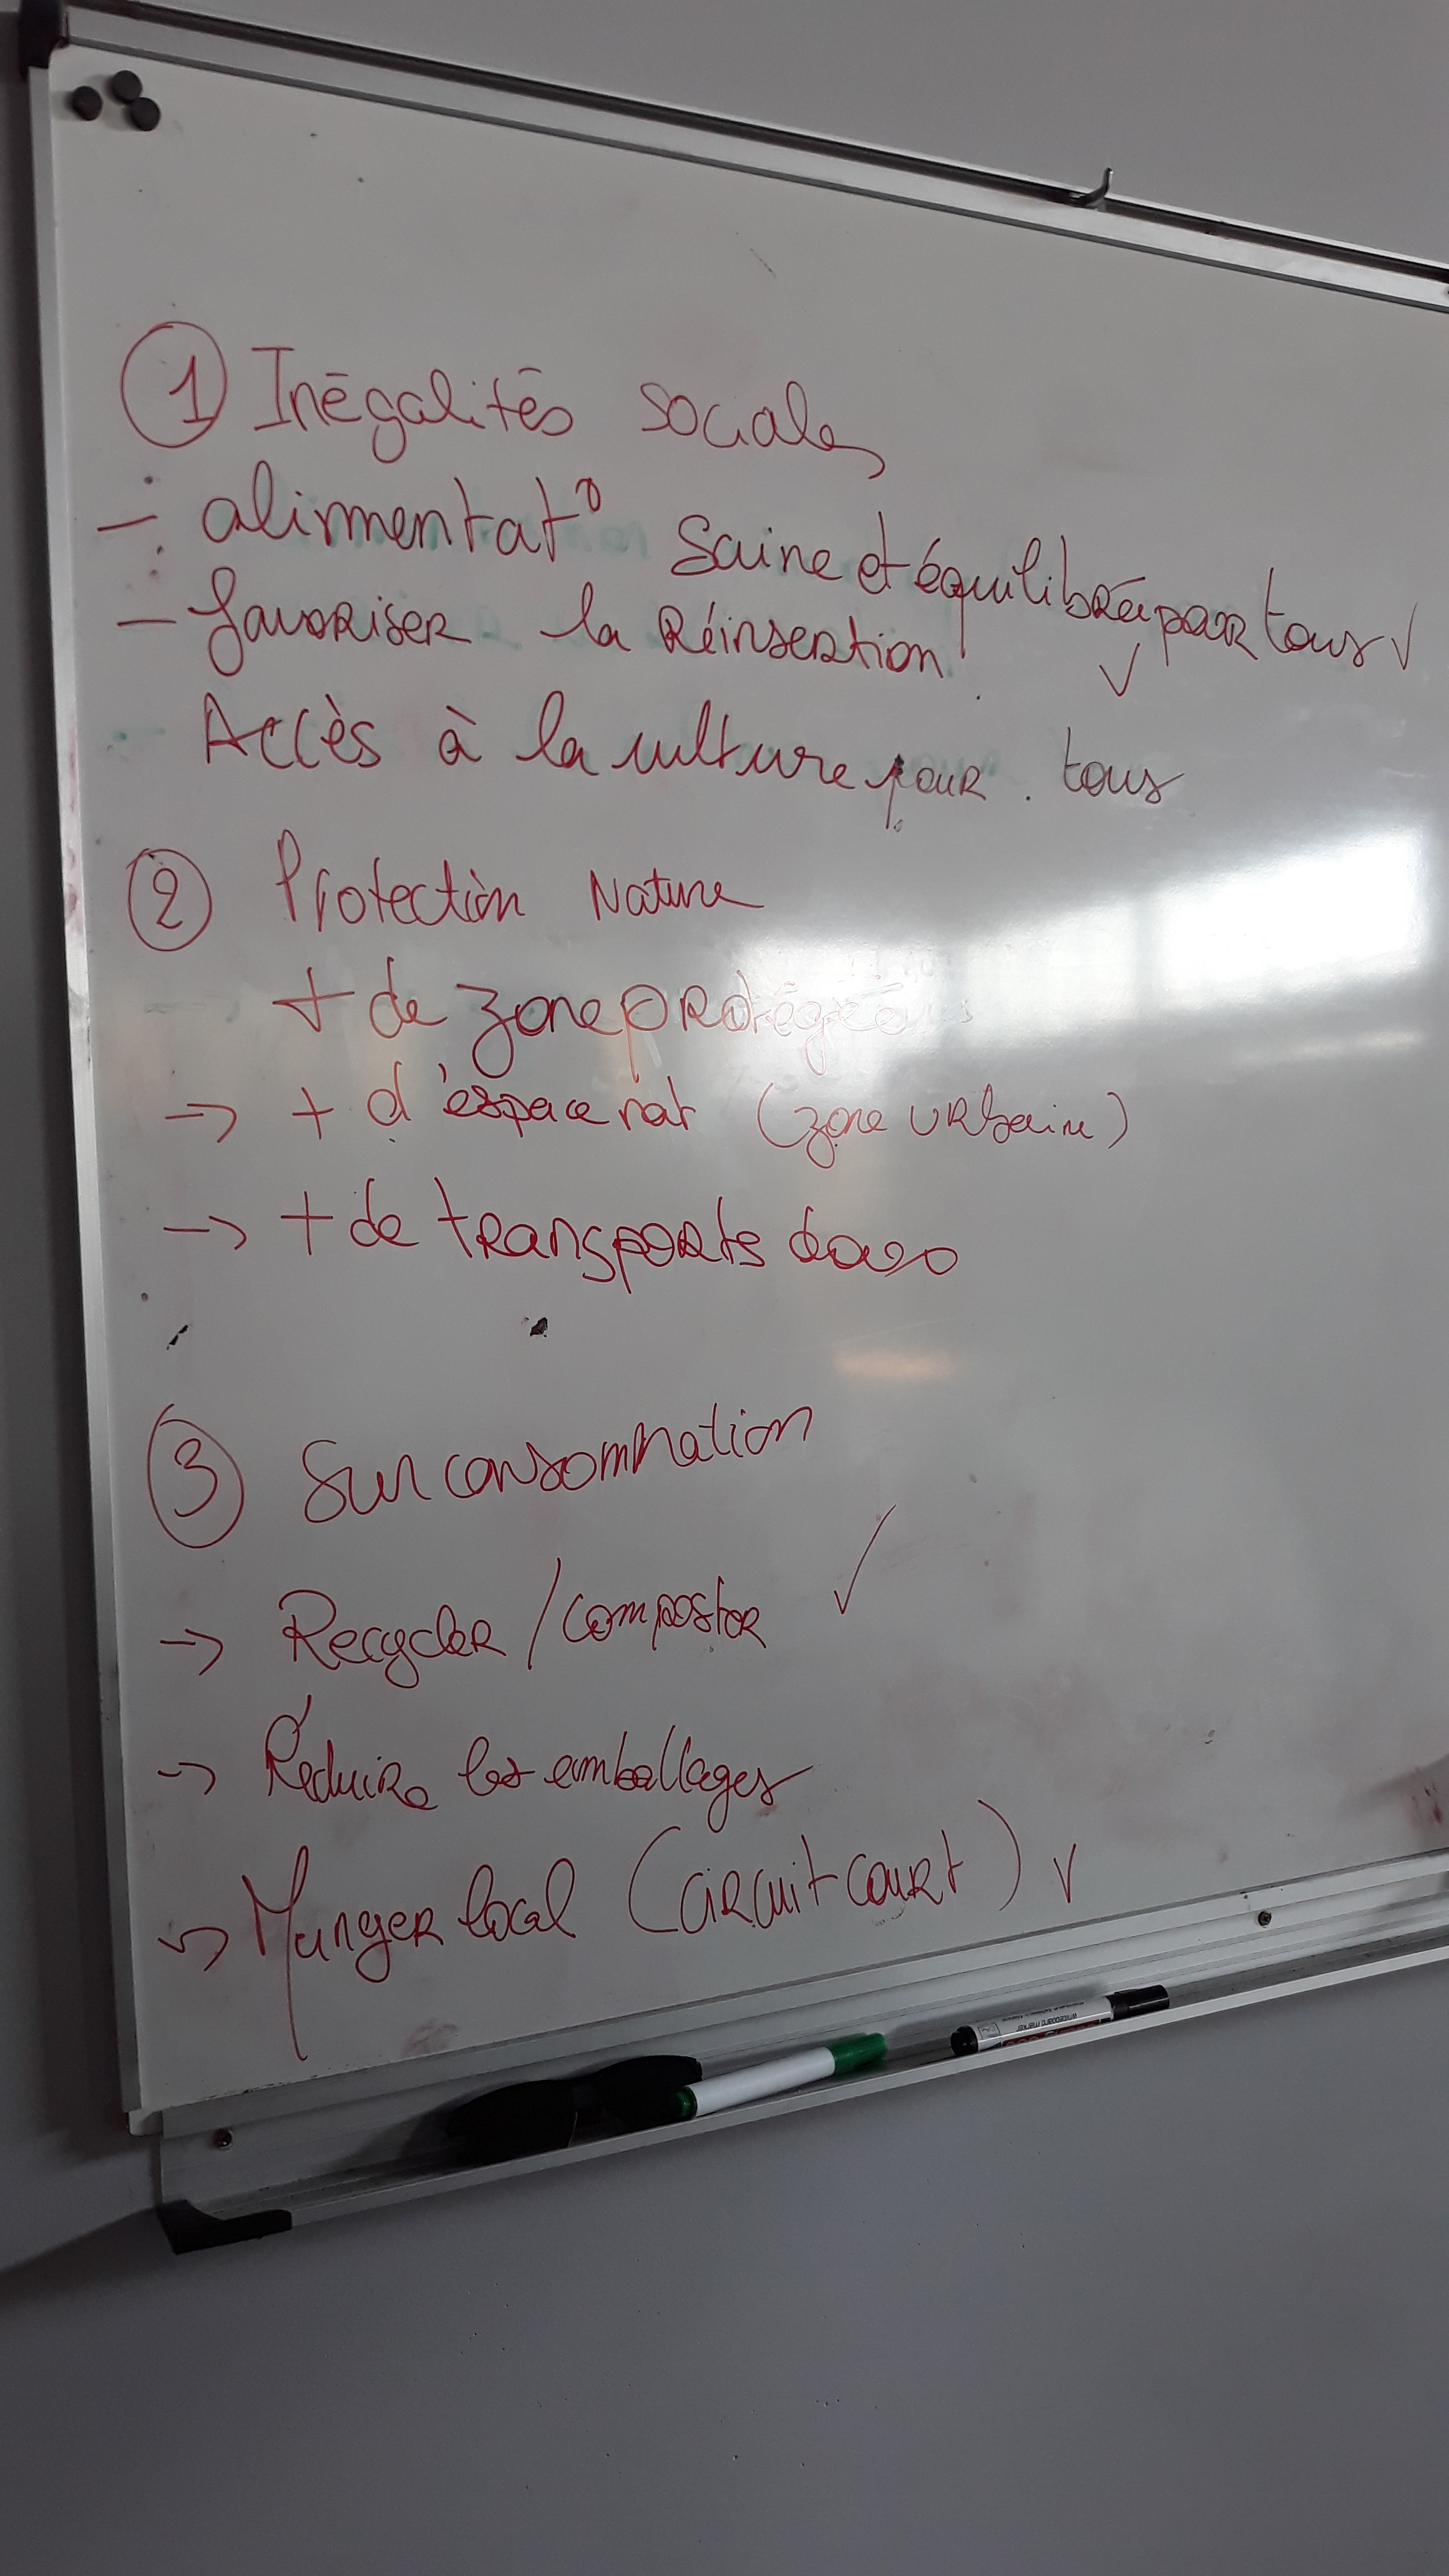 ① Inégalités sociales
- alimentat° saine et équilibrée pour tous ✓
- favoriser la Réinsertion ! ✓
Accès à la culture pour tous
② Protection Nature
+ de zone protégées
→ + d'espace nat (zone urbaine)
→ + de transports doux
③ Surconsommation
→ Recycler / composter ✓
→ Réduire les emballages
→ Manger local (circuit court) ✓
whiteboard marker